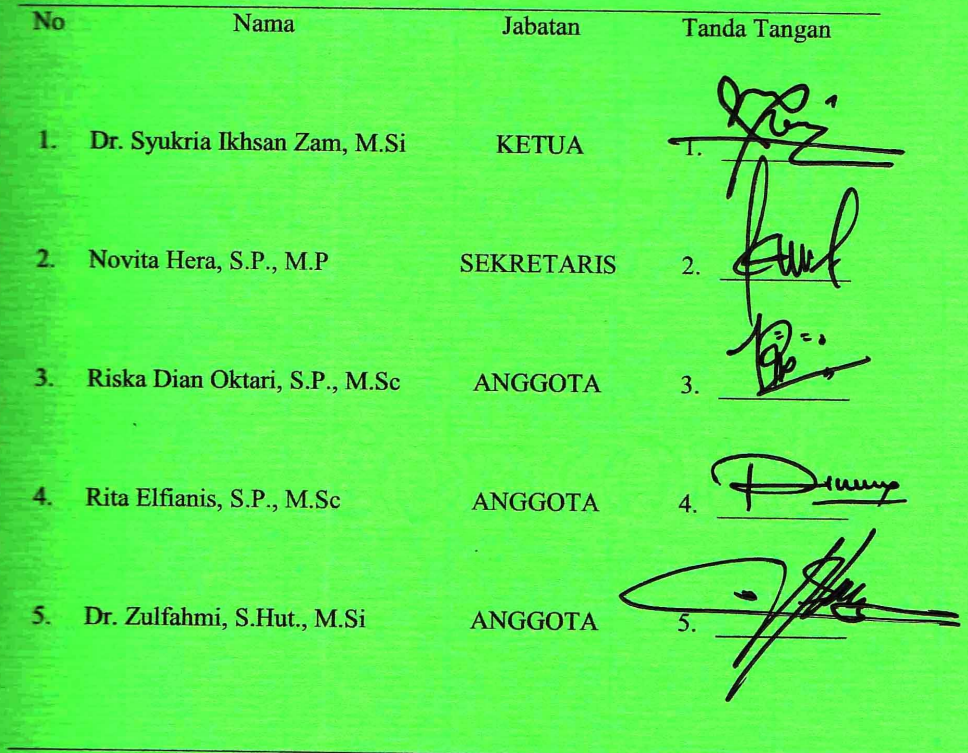 No Nama Jabatan Tanda Tangan
1. Dr. Syukria Ikhsan Zam, M.Si KETUA 1.
2. Novita Hera, S.P., M.P SEKRETARIS 2.
3. Riska Dian Oktari, S.P., M.Sc ANGGOTA 3.
4. Rita Elfianis, S.P., M.Sc ANGGOTA 4.
5. Dr. Zulfahmi, S.Hut., M.Si ANGGOTA 5.